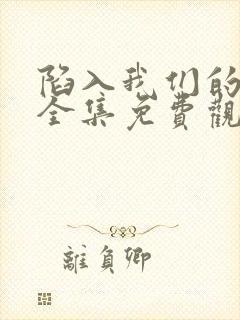 陷入我们的
全集免費觀
離負卿